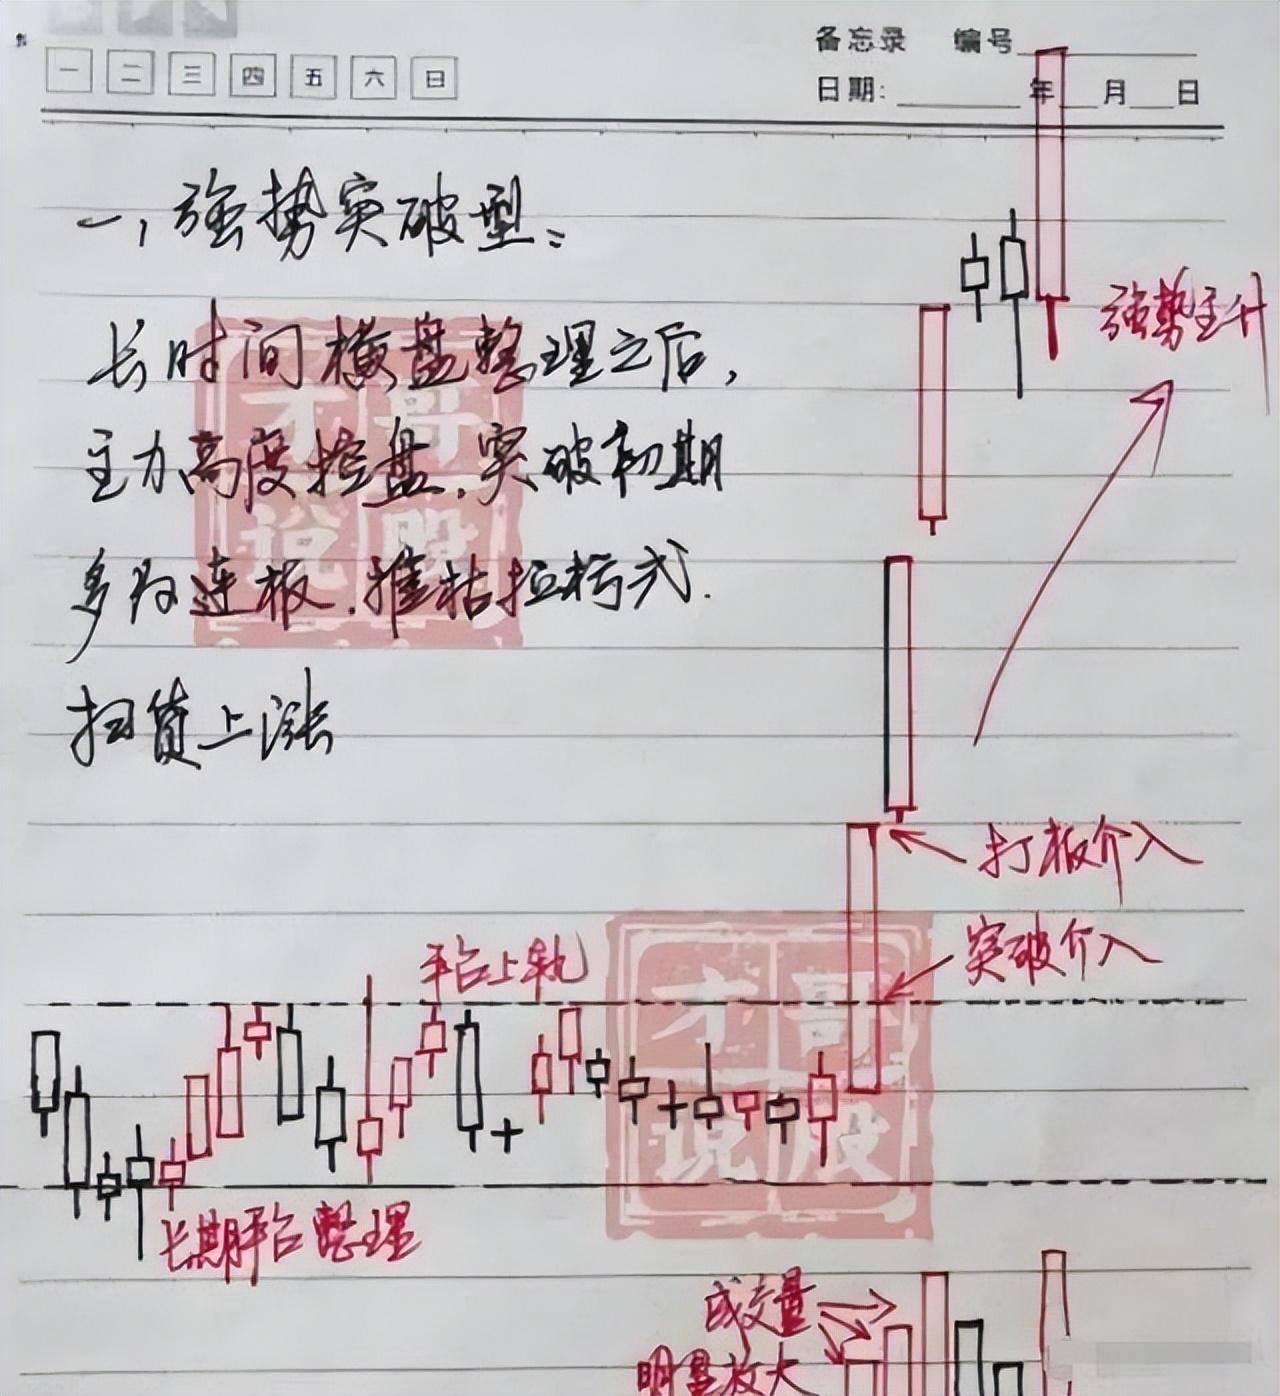 备忘录 编号
一 二 三 四 五 六 日
日期: 年 月 日
一，强势突破型：
长时间横盘整理之后，
主力高度控盘，突破初期
多为连板，摧枯拉朽式
扫货上涨
强势主升
打板介入
突破介入
平台上轨
长期平台整理
成交量
明显放大
才哥
说股
才哥
说股